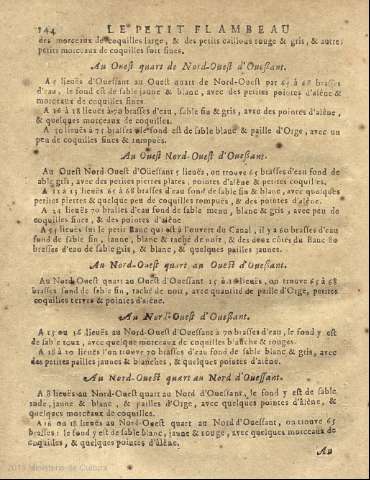 144 LE PETIT FLAMBEAU
des morceaux de coquilles large, & des petits cailloux rouge & gris, & autre
petits morceaux de coquilles fort fines.
Au Ouest quart de Nord-Ouest d'Ouessant.
A 5 lieuës d'Ouessant au Ouest quart de Nord-Ouest par 65 à 68 brasses
d'eau, le fond est de sable jaune & blanc, avec des petites pointes d'alêne &
morceaux de coquilles fines.
A 16 à 18 lieuës à 70 brasses d'eau, sable fin & gris, avec des pointes d'alêne,
& quelques morceaux de coquilles.
A 30 lieuës à 75 brasses le fond est de sable blanc & paille d'Orge, avec un
peu de coquilles fines & rompuës.
Au Ouest Nord-Ouest d'Ouessant.
Au Ouest Nord-Ouest d'Ouessant 5 lieuës, on trouve 65 brasses d'eau fond de
sable gris, avec des petites pierres plates, pointes d'alêne & petites coquilles.
A 12 à 15 lieuës 65 à 68 brasses d'eau fond de sable fin & blanc, avec quelques
petits pierres & quelque peu de coquilles rompuës, & des pointes d'alêne.
A 24 lieuës 70 brasses d'eau fond de sable menu, blanc & gris, avec peu de
coquilles fines, & des pointes d'alêne
A 54 lieuës sur le petit Banc qui est à l'ouvert du Canal, il y a 80 brasses d'eau
fond de sable fin, jaune, blanc & taché de noir, & des deux côtés du Banc 80
brasses d'eau de sable gris, & blanc, & quelques pailles jaunes.
Au Nord-Ouest quart au Ouest d'Ouessant.
Au Nord-Ouest quart au Ouest d'Ouessant 15 à 18 lieuës, on trouve 65 à 68
brasses fond de sable fin, taché de noir, avec quantité de paille d'Orge, petites
coquilles terres & pointes d'alêne.
Au Nord-Ouest d'Ouessant.
A 15 ou 16 lieuës au Nord-Ouest d'Ouessant à 70 brasses d'eau, le fond y est
de sable roux, avec quelque morceaux de coquilles blanche & rouges.
A 18 à 20 lieuës l'on trouve 70 brasses d'eau fond de sable blanc & gris, avec
des petites pailles jaunes à la blanches, & quelques pointes d'alêne.
Au Nord-Ouest quart au Nord d'Ouessant.
A 8 lieuës au Nord-Ouest quart au Nord d'Ouessant, le fond y est de sable
rude, jaune & blanc, & pailles d'Orge, avec quelques pointes d'alêne, &
quelques morceaux de coquilles.
A 16 ou 18 lieuës au Nord-Ouest quart au Nord d'Ouessant, on trouve 65
brasses: le fond y est de sable blanc, jaune & rouge, avec quelques morceaux de
coquilles, & quelques pointes d'alêne.
Au
2015 Ministerio de Cultura